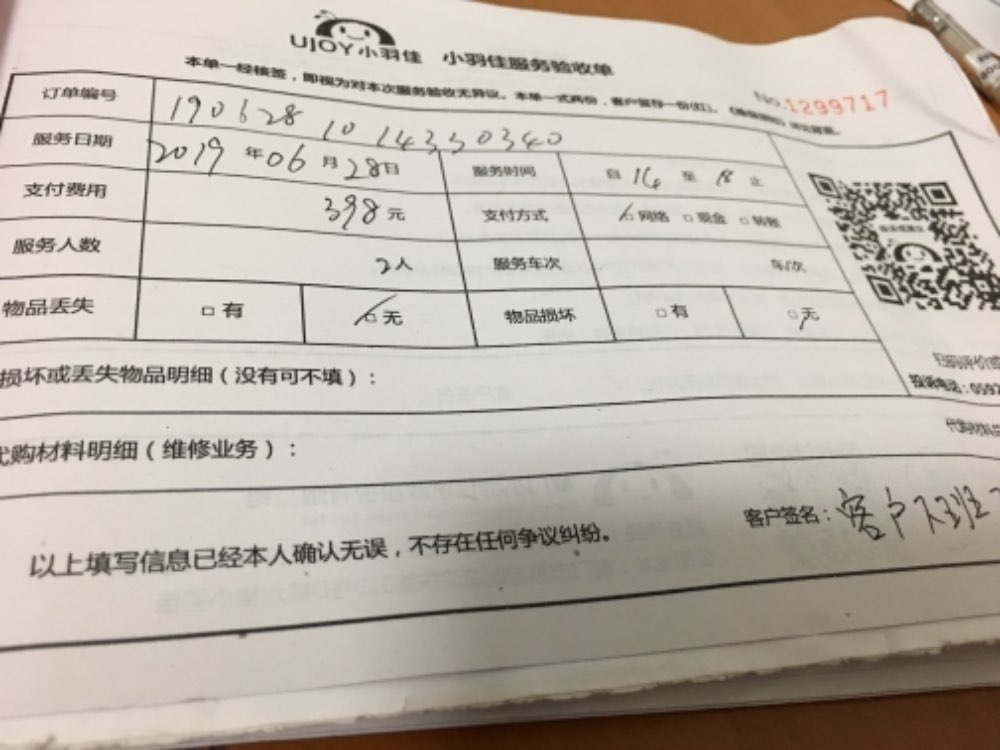 UJOY小羽佳 小羽佳服务验收单
本单一经核签，即视为对本次服务验收无异议。本单一式两份，客户留存一份(红)。
NO.1299717
订单编号 190628 10 143350340
服务日期 2019 年 06 月 28 日 服务时间 自 14 至 18 止
支付费用 398 元 支付方式 □网络 □现金 □转账
服务人数 2人 服务车次 车/次
物品丢失 □有 □无 物品损坏 □有 □无
损坏或丢失物品明细（没有可不填）：
扫码评价
投诉电话：0592
代购材料明细（维修业务）：
代购材料
以上填写信息已经本人确认无误，不存在任何争议纠纷。
客户签名：客户不班